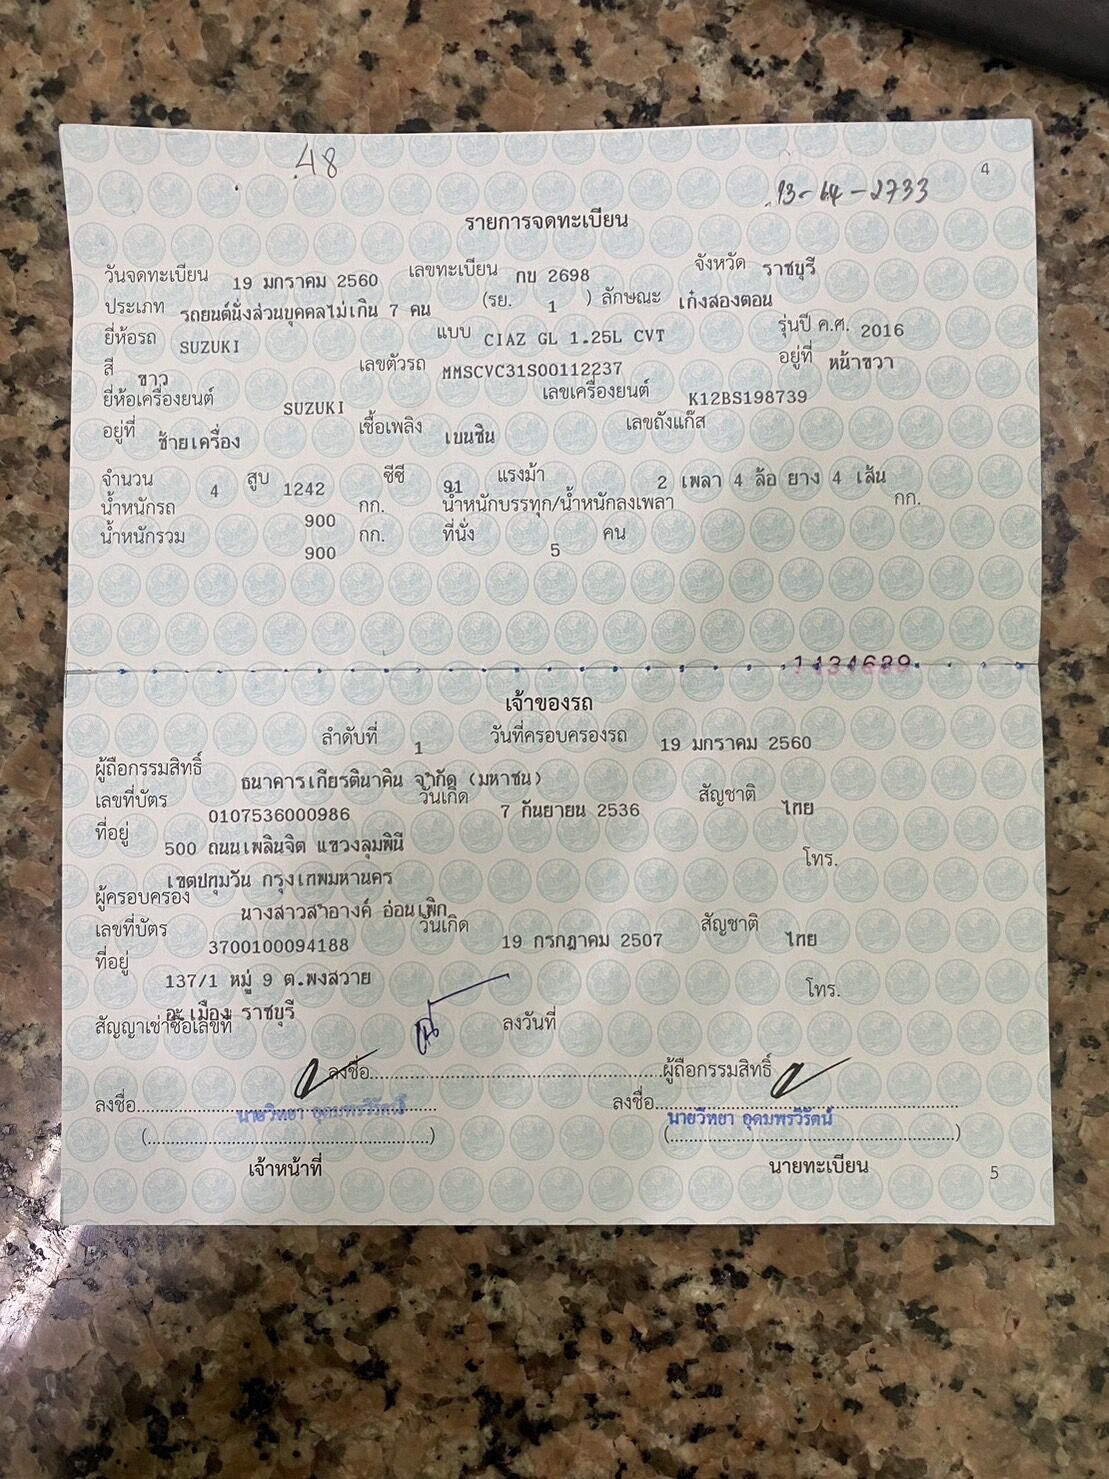 48
4
13-64-2733
รายการจดทะเบียน
วันจดทะเบียน 19 มกราคม 2560 เลขทะเบียน กข 2698 จังหวัด ราชบุรี
ประเภท รถยนต์นั่งส่วนบุคคลไม่เกิน 7 คน (รย. 1 ) ลักษณะ เก๋งสองตอน
ยี่ห้อรถ SUZUKI แบบ CIAZ GL 1.25L CVT รุ่นปี ค.ศ. 2016
สี ขาว เลขตัวรถ MMSCVC31S00112237 อยู่ที่ หน้าขวา
ยี่ห้อเครื่องยนต์ SUZUKI เลขเครื่องยนต์ K12BS198739
อยู่ที่ ซ้ายเครื่อง เชื้อเพลิง เบนซิน เลขถังแก๊ส
จำนวน 4 สูบ 1242 ซีซี 91 แรงม้า 2 เพลา 4 ล้อ ยาง 4 เส้น
น้ำหนักรถ 900 กก. น้ำหนักบรรทุก/น้ำหนักลงเพลา กก.
น้ำหนักรวม 900 กก. ที่นั่ง 5 คน
1434689
เจ้าของรถ
ลำดับที่ 1 วันที่ครอบครองรถ 19 มกราคม 2560
ผู้ถือกรรมสิทธิ์ ธนาคารเกียรตินาคิน จำกัด (มหาชน)
เลขที่บัตร 0107536000986 วันเกิด 7 กันยายน 2536 สัญชาติ ไทย
ที่อยู่ 500 ถนนเพลินจิต แขวงลุมพินี
เขตปทุมวัน กรุงเทพมหานคร โทร.
ผู้ครอบครอง นางสาวสำอางค์ อ่อนเพิก
เลขที่บัตร 3700100094188 วันเกิด 19 กรกฎาคม 2507 สัญชาติ ไทย
ที่อยู่ 137/1 หมู่ 9 ต.พงสวาย
อ.เมือง ราชบุรี โทร.
สัญญาเช่าซื้อเลขที่ ลงวันที่
ลงชื่อ ผู้ถือกรรมสิทธิ์
ลงชื่อ ลงชื่อ
นายวิทยา อุดมพรวิรัตน์ นายวิทยา อุดมพรวิรัตน์
( ) ( )
เจ้าหน้าที่ นายทะเบียน
5